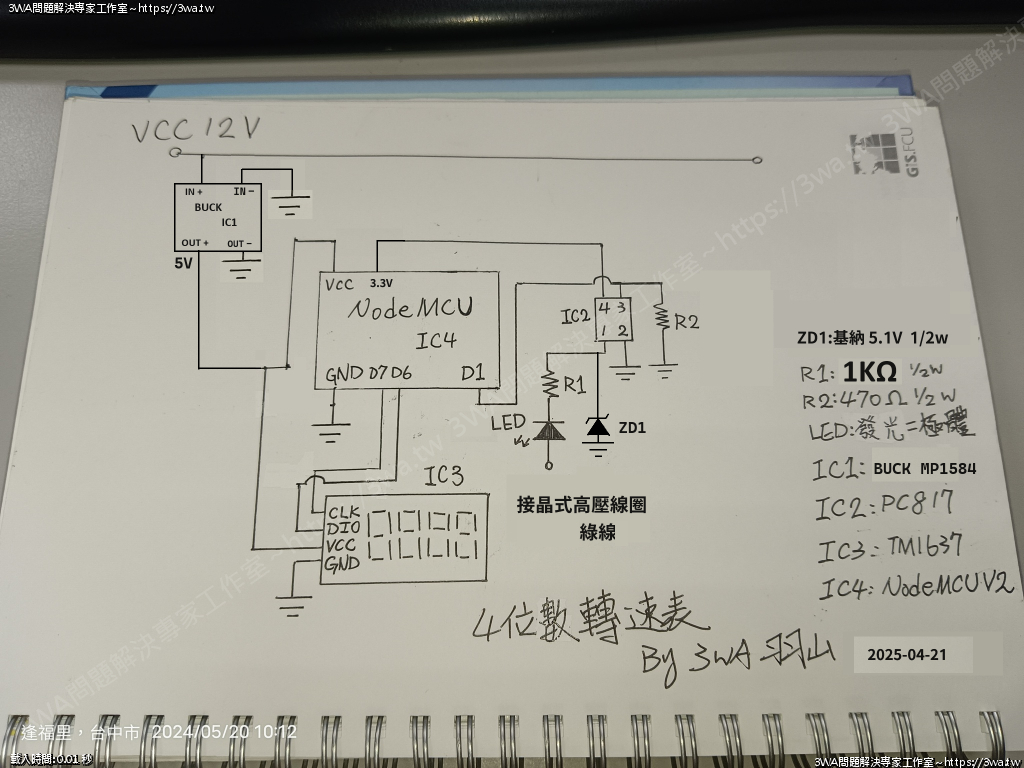 3WA問題解決專家工作室~https://3wa.tw
VCC 12V
GIS.FCU
IN +
IN -
BUCK
IC1
OUT +
OUT -
5V
VCC
3.3V
NodeMCU
IC4
GND D7 D6
D1
IC2
4 3
1 2
R2
R1
LED
ZD1
ZD1:基納 5.1V 1/2w
R1: 1KΩ 1/2W
R2:470Ω 1/2W
LED:發光二極體
IC1: BUCK MP1584
IC2: PC817
IC3: TM1637
IC4: NodeMCU V2
IC3
CLK
DIO
VCC
GND
接晶式高壓線圈
綠線
4位數轉速表
By 3WA 羽山
2025-04-21
逢福里，台中市 2024/05/20 10:12
載入時間:0.01 秒
3WA問題解決專家工作室~https://3wa.tw